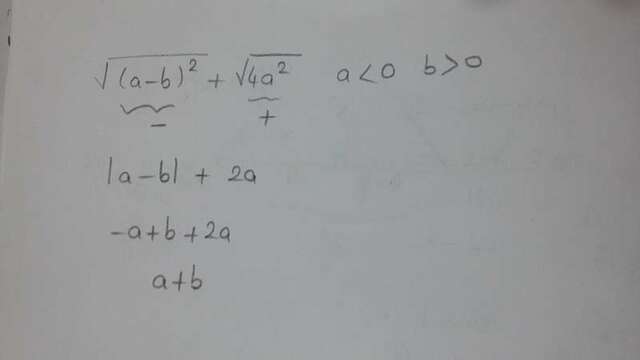 √(a-b)² + √4a² a<0 b>0
- +
|a-b| + 2a
-a+b+2a
a+b